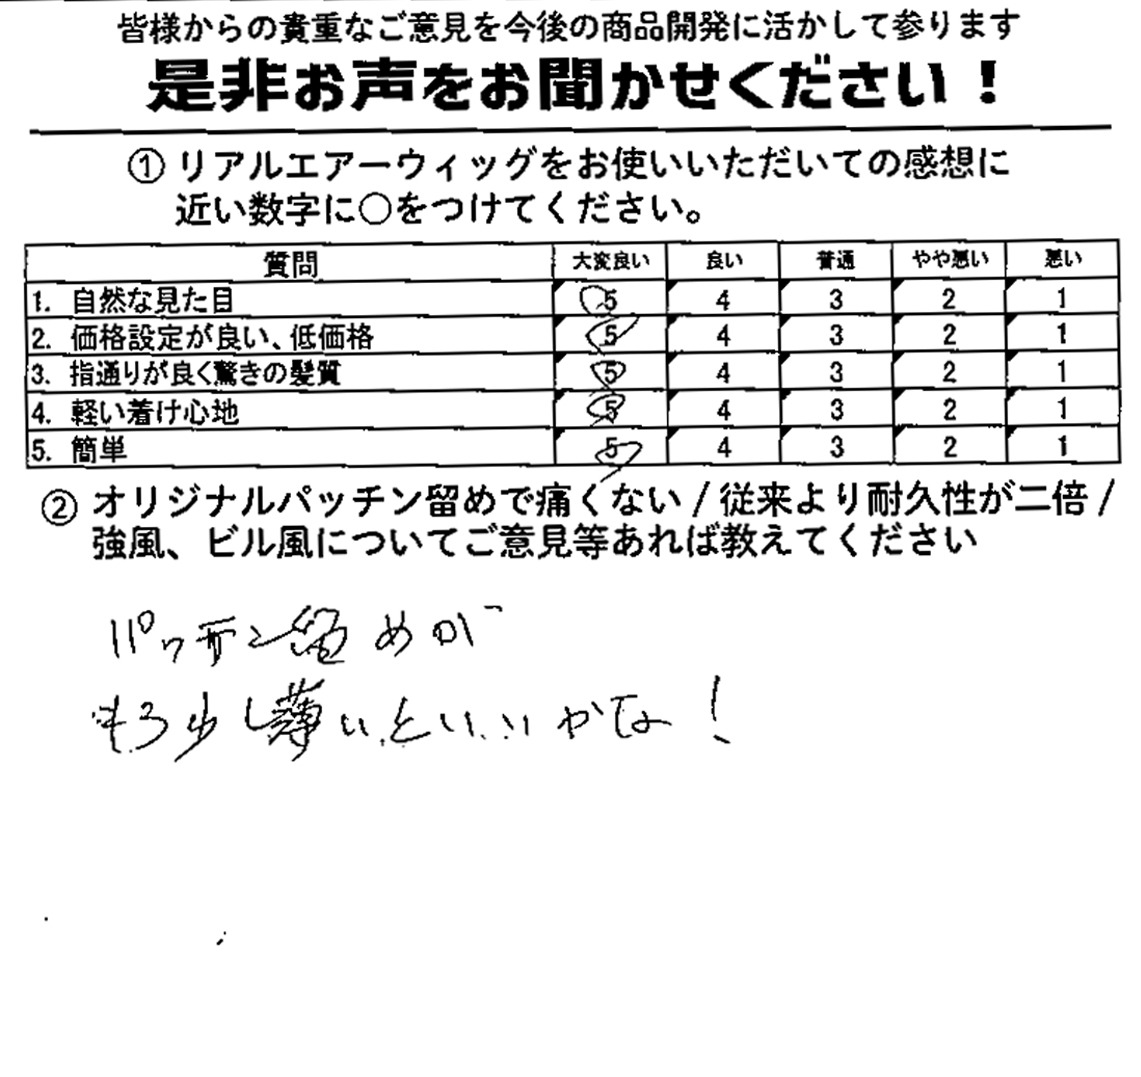 皆様からの貴重なご意見を今後の商品開発に活かして参ります
是非お声をお聞かせください！
① リアルエアーウィッグをお使いいただいての感想に
近い数字に○をつけてください。
質問 大変良い 良い 普通 やや悪い 悪い
1. 自然な見た目 5 4 3 2 1
2. 価格設定が良い、低価格 5 4 3 2 1
3. 指通りが良く驚きの髪質 5 4 3 2 1
4. 軽い着け心地 5 4 3 2 1
5. 簡単 5 4 3 2 1
② オリジナルパッチン留めで痛くない/従来より耐久性が二倍/
強風、ビル風についてご意見等あれば教えてください
パッチン留めが
もう少し薄いといいかな！